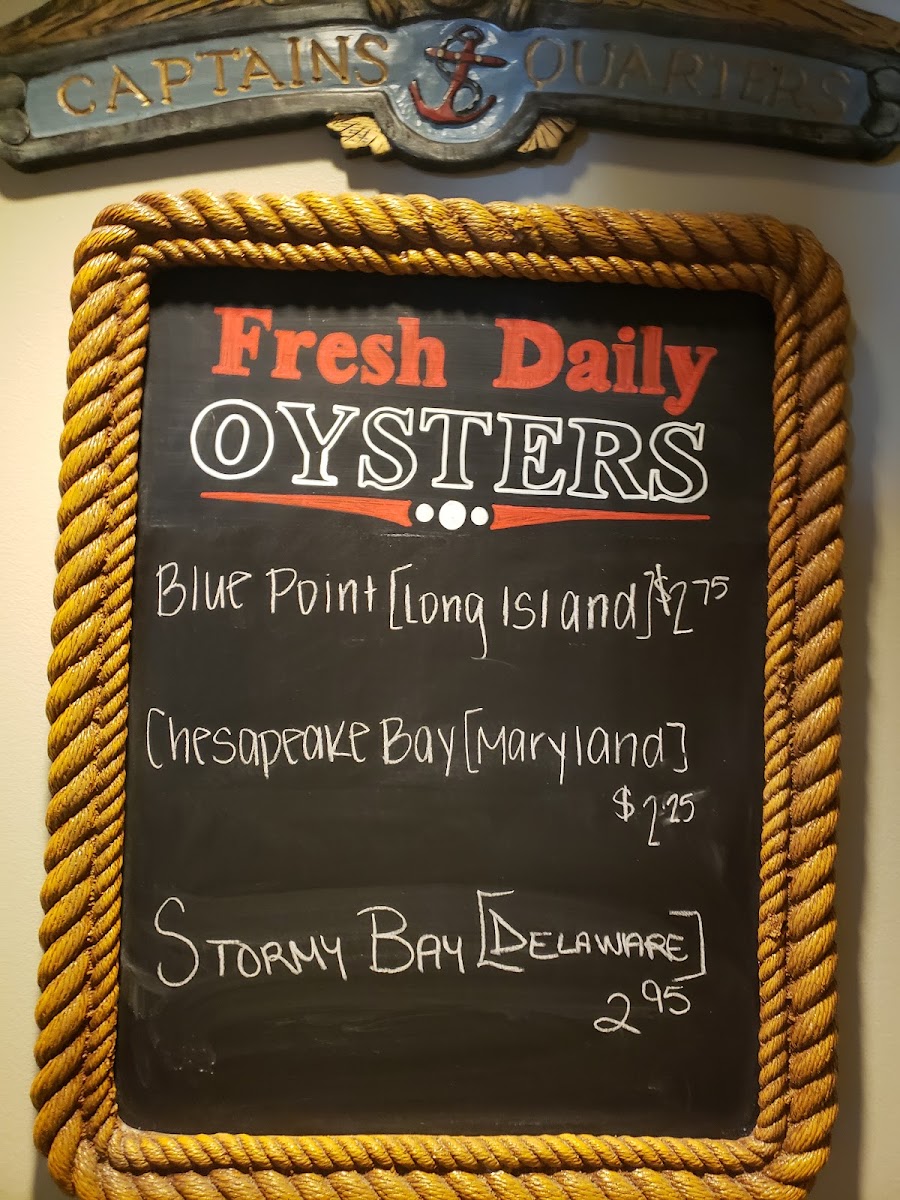 CAPTAINS QUARTERS
Fresh Daily
OYSTERS
Blue Point [Long Island] $2.75
Chesapeake Bay [Maryland]
$2.25
STORMY BAY [DELAWARE]
2.95